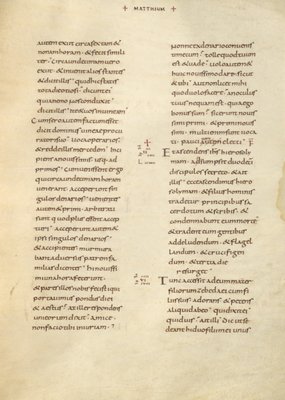 + MATTHIUM +
autem exiit circa sextam &
nonam horam . & fecit simili
ter . Circa undecimam uero
exiit . & inuenit alios stantes
& dicit illis . quid hic statis
tota die otiosi . dicunt ei
quia nemo nos conduxit .
dicit illis . ite & uos in uineam .
Cum sero autem factum esset
dicit dominus uineae procu
ratori suo . uoca operarios .
& redde illis mercedem . inci
piens a nouissimis usq· ad
primos . Cum uenissent ergo
qui circa undecimam horam
uenerant . acceperunt sin
gulos denarios . uenientes
autem & primi . arbitrati
sunt quod plus essent accep
turi . acceperunt autem &
ipsi singulos denarios .
& accipientes murmura
bant aduersus patrem fa
milias dicentes . hi nouissimi
una hora fecerunt .
& pares illos nobis fecisti qui
portauimus pondus diei
& aestus . at ille respondens
uni eorum dixit . amice .
non facio tibi iniuriam .
nonne ex denario conuenisti
mecum ? tolle quod tuum
est & uade . uolo autem &
huic nouissimo dare sicut
& tibi . aut non licet mihi
quod uolo facere . an oculus
tuus nequam est . quia ego
bonus sum . sic erunt nouis
simi primi . & primi nouis
simi . multi enim sunt uoca
ti . pauci autem electi .
Et ascendens ihs hierosoly
mam . adsumpsit duodeci
discipulos secreto . & ait
illis . ecce ascendimus hieroso
lymam . & filius hominis
tradetur principibus sa
cerdotum & scribis . &
condemnabunt eum morte
& tradent eum gentibus
ad deludendum . & flagel
landum . & crucifigen
dum . & tertia die
resurget .
Tunc accessit ad eum mater
filiorum zebedaei cum fi
liis suis adorans & petens
aliquid ab eo . qui dixit ei
quid uis . ait illi . dic ut se
deant hi duo filii mei unus